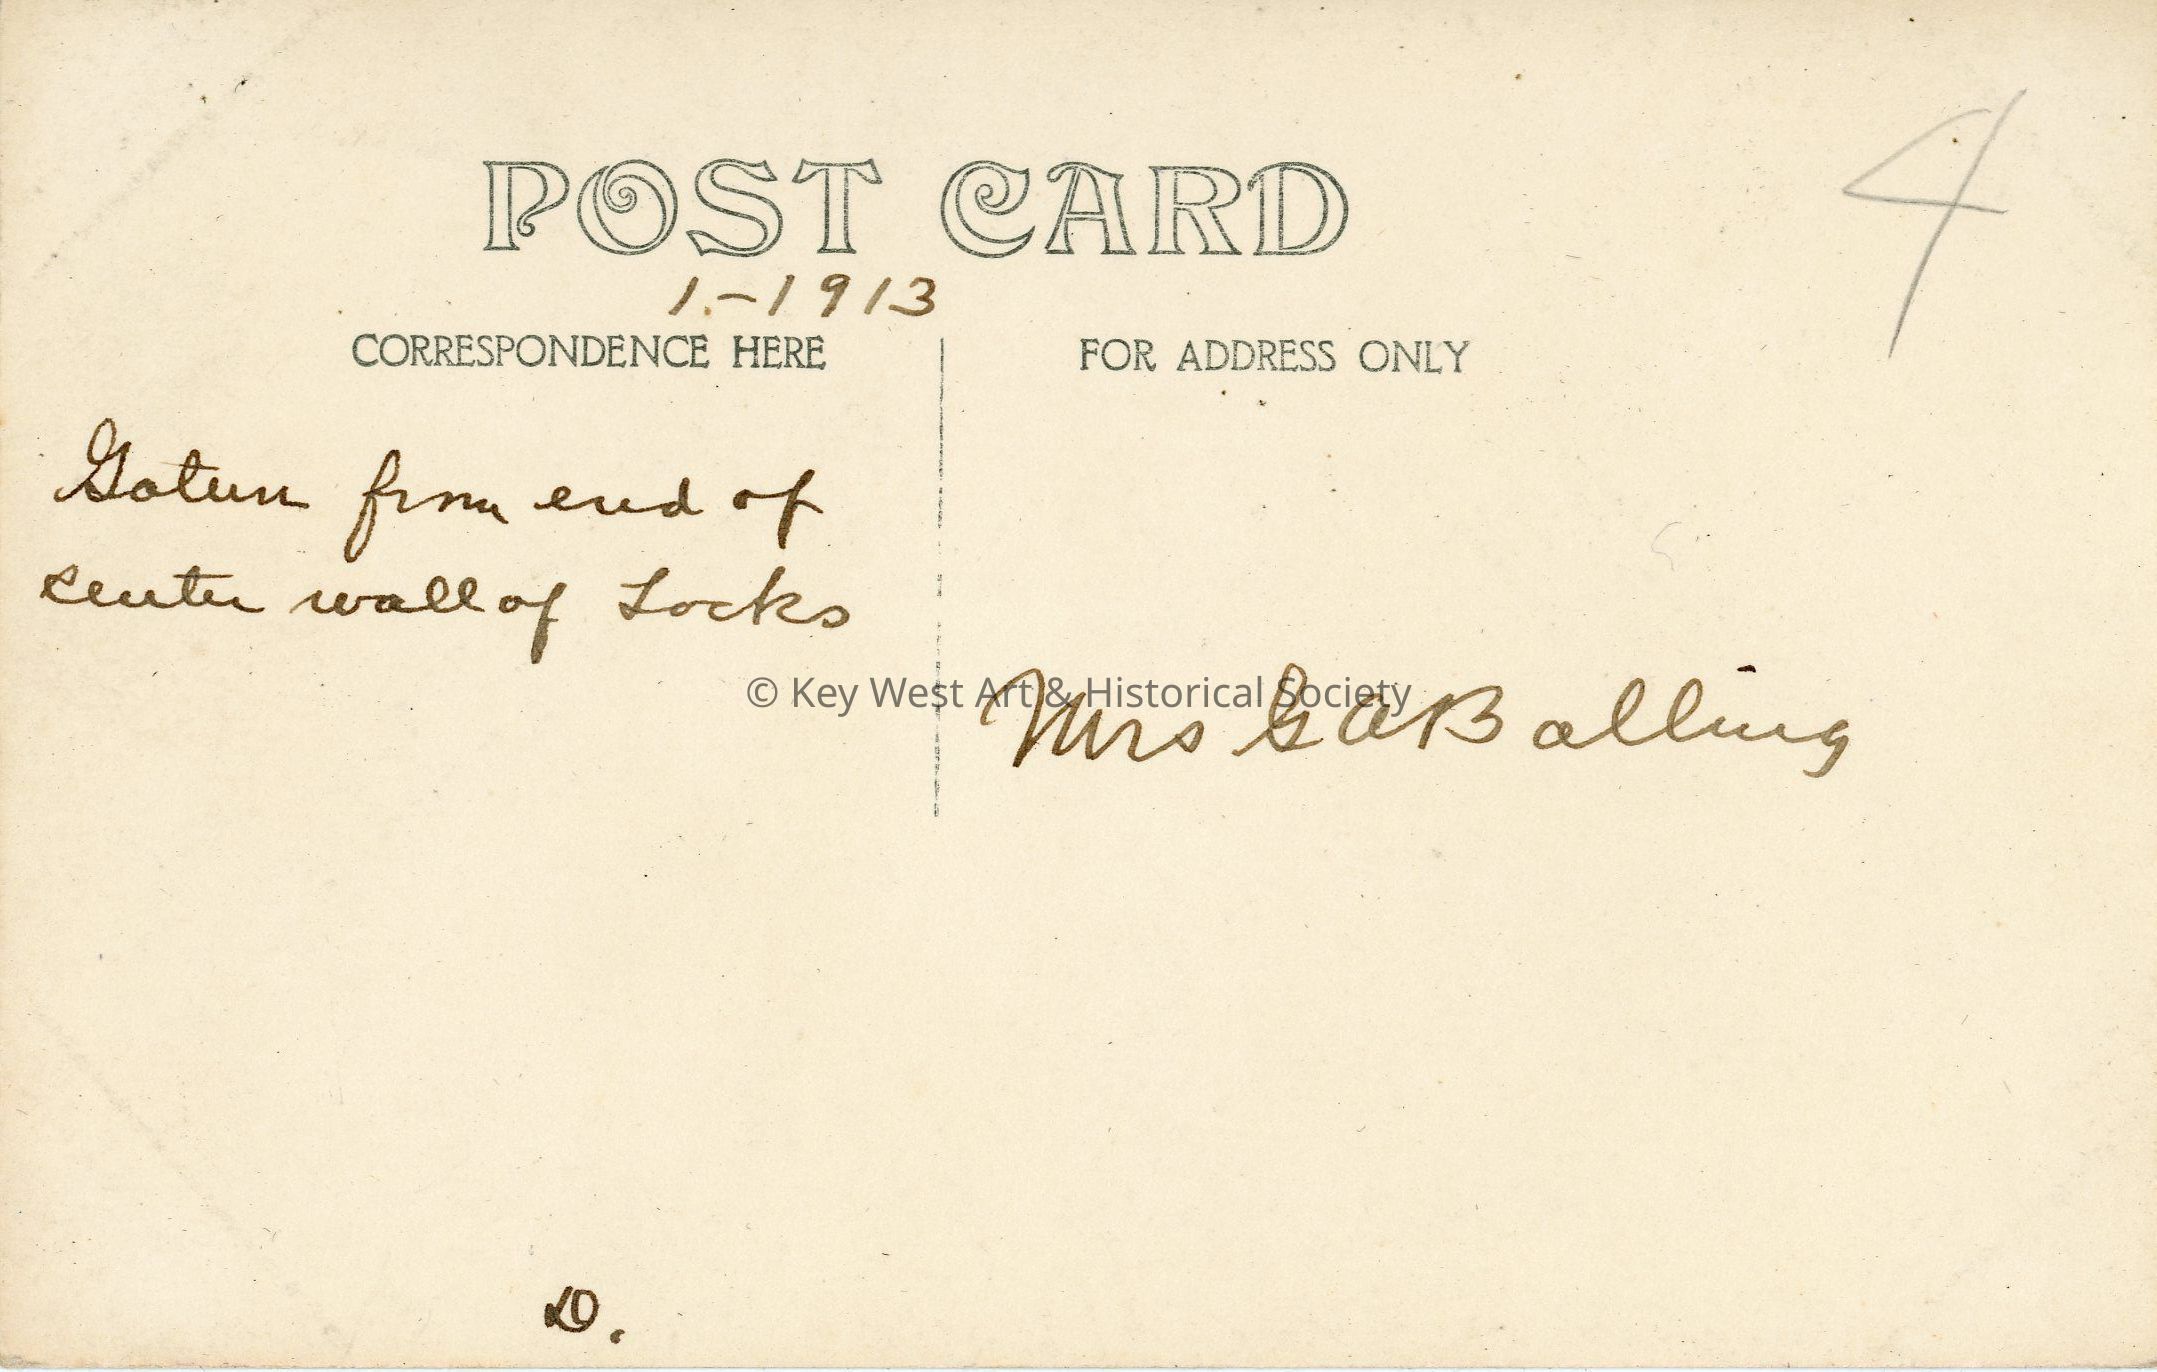 4
POST CARD
1.-1913
CORRESPONDENCE HERE
FOR ADDRESS ONLY
Gatun from end of
center wall of Locks
© Key West Art & Historical Society
Mrs G A Balling
D.